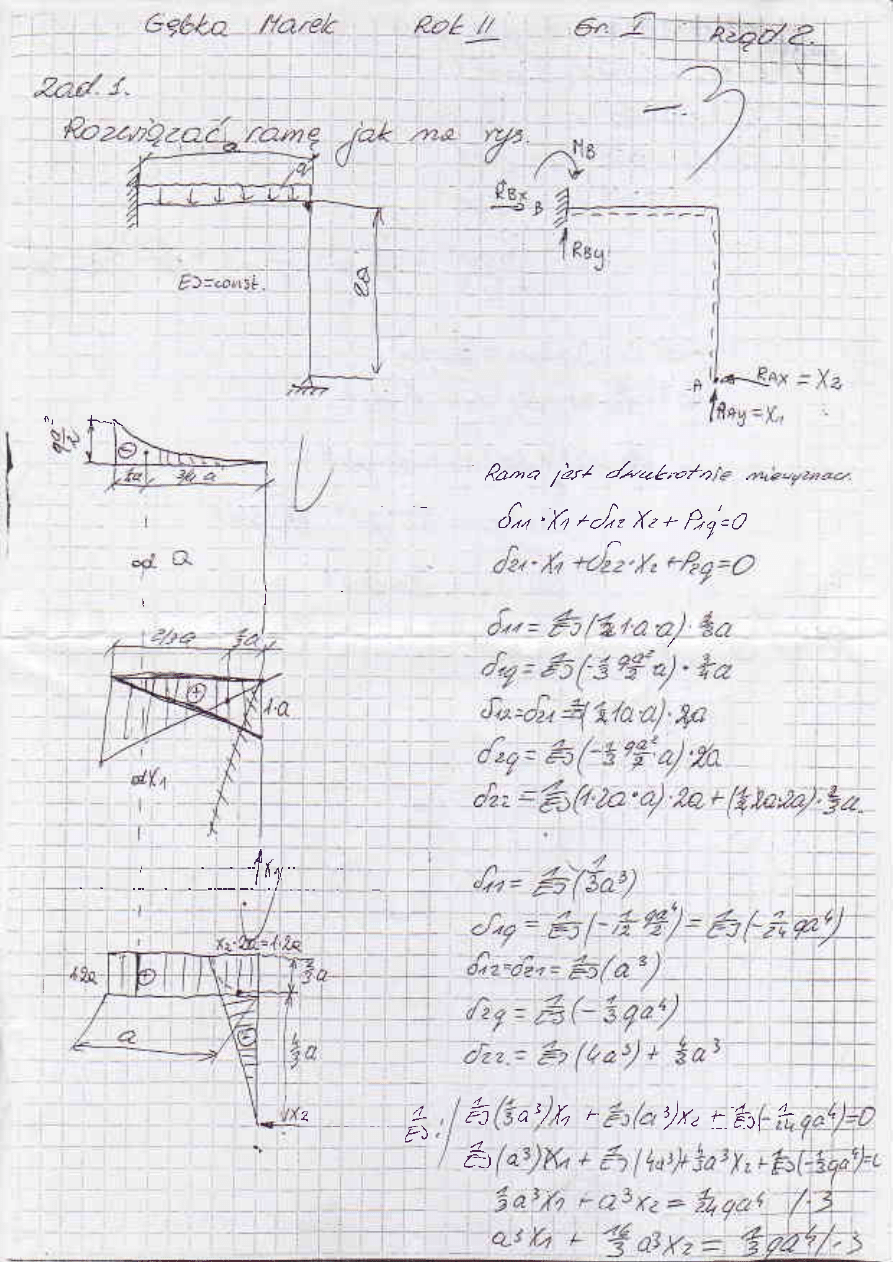 Gębka Marek Rok II Gr. I Rząd 2.
Zad. 1.
-3
Rozwiązać ramę jak na rys.
a
q
EJ=const.
2a
MB
RBx B
RBy
A RAX = X2
RAy = X1
qa²/2
⊖
¼a ¾a
od Q
Rama jest dwukrotnie niewyznacz.
δ11·X1+δ12 X2+P1q=0
δ21·X1+δ22·X2+P2q=0
2/3a ⅓a
⊕ 1·a
od X1
δ11= 1/EJ(½1·a·a)·⅔a
δ1q= 1/EJ(-⅓ qa²/2 ·a)·¾a
δ12=δ21=1/EJ(½1a·a)·2a
δ2q= 1/EJ(-⅓ qa²/2 ·a)·2a
δ22=1/EJ(1·2a·a)·2a+(½2a·2a)·⅔a.
X1
X2·2a=1·2a
1·2a ⊕ ⅔a
a ⊕ 4/3a
X2
δ11= 1/EJ(⅓a³)
δ1q = 1/EJ(-1/12 qa⁴/2)= 1/EJ(-1/24 qa⁴)
δ12=δ21= 1/EJ(a³)
δ2q= 1/EJ(-⅓qa⁴)
δ22= 1/EJ(4a³)+ 4/3a³
1/EJ: / 1/EJ(⅓a³)X1 + 1/EJ(a³)X2 + 1/EJ(-1/24 qa⁴)=0
1/EJ(a³)X1 + 1/EJ(4a³)+4/3a³X2+1/EJ(-⅓qa⁴)=0
⅓a³X1 + a³X2 = 1/24qa⁴ /·3
a³X1 + 16/3 a³X2 = ⅓qa⁴/·3